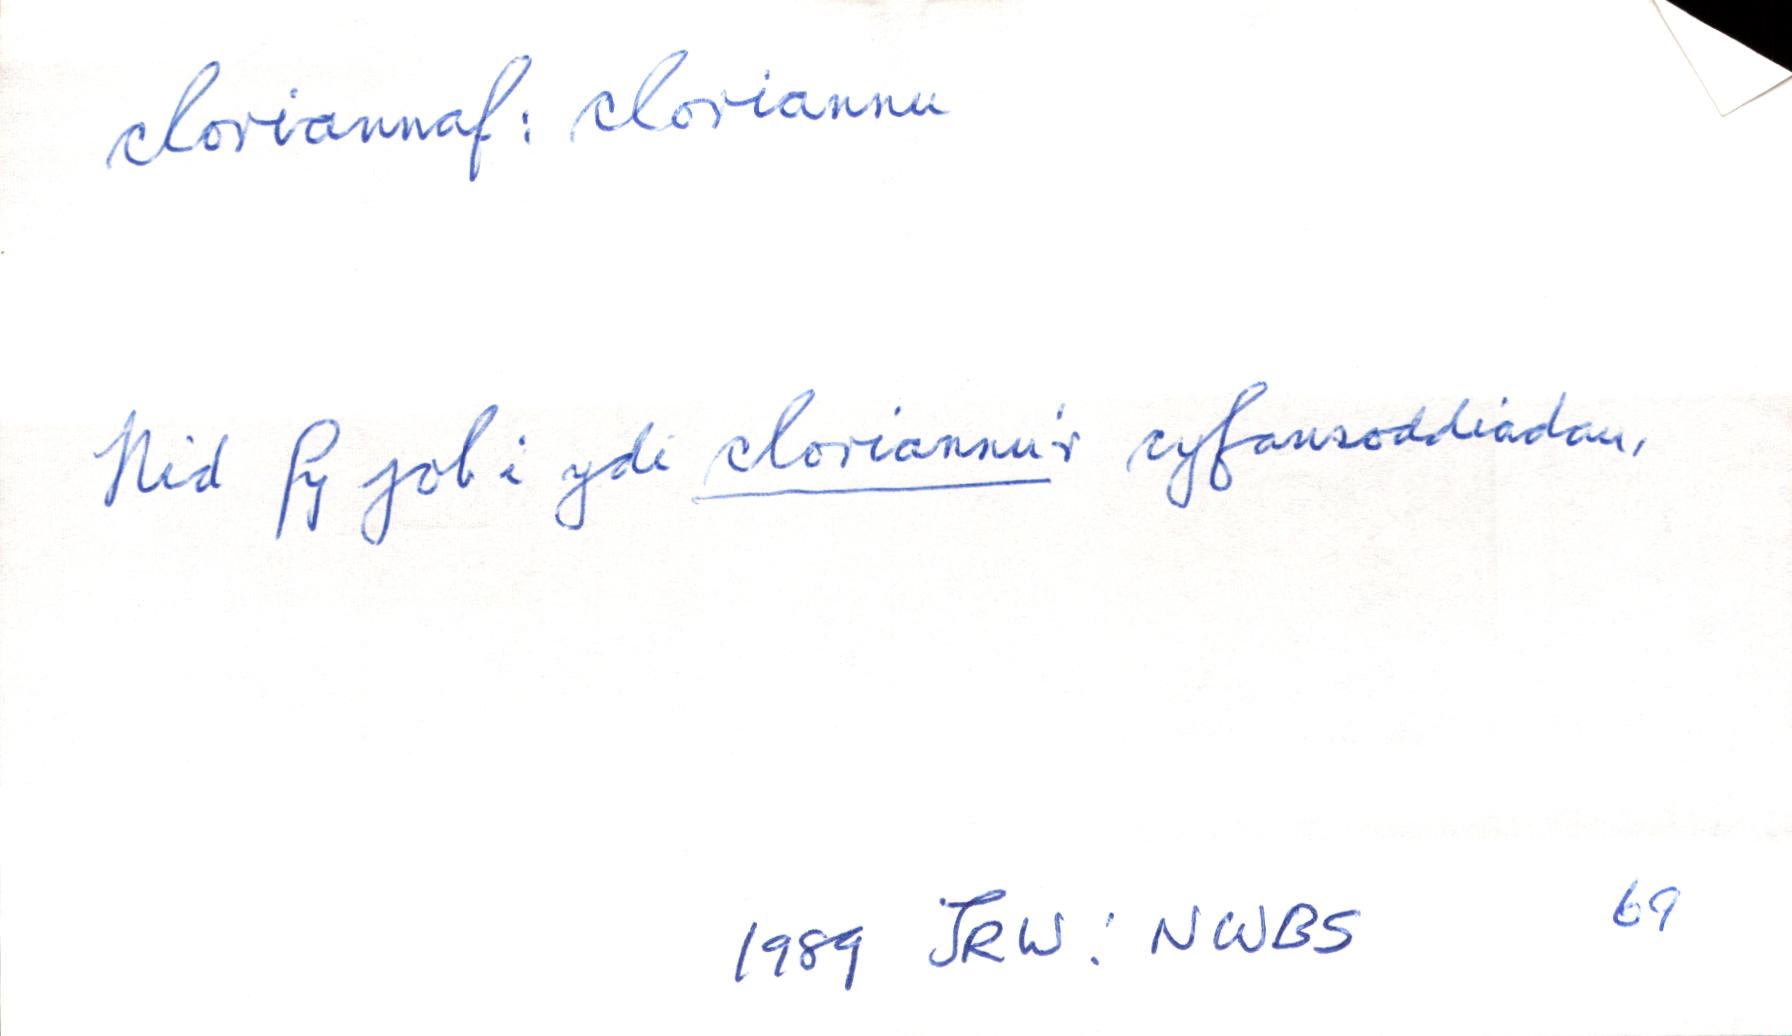 cloriannaf: cloriannu
Nid fy job i ydi cloriannu'r cyfansoddiadau,
1989 JRW: NWBS 69